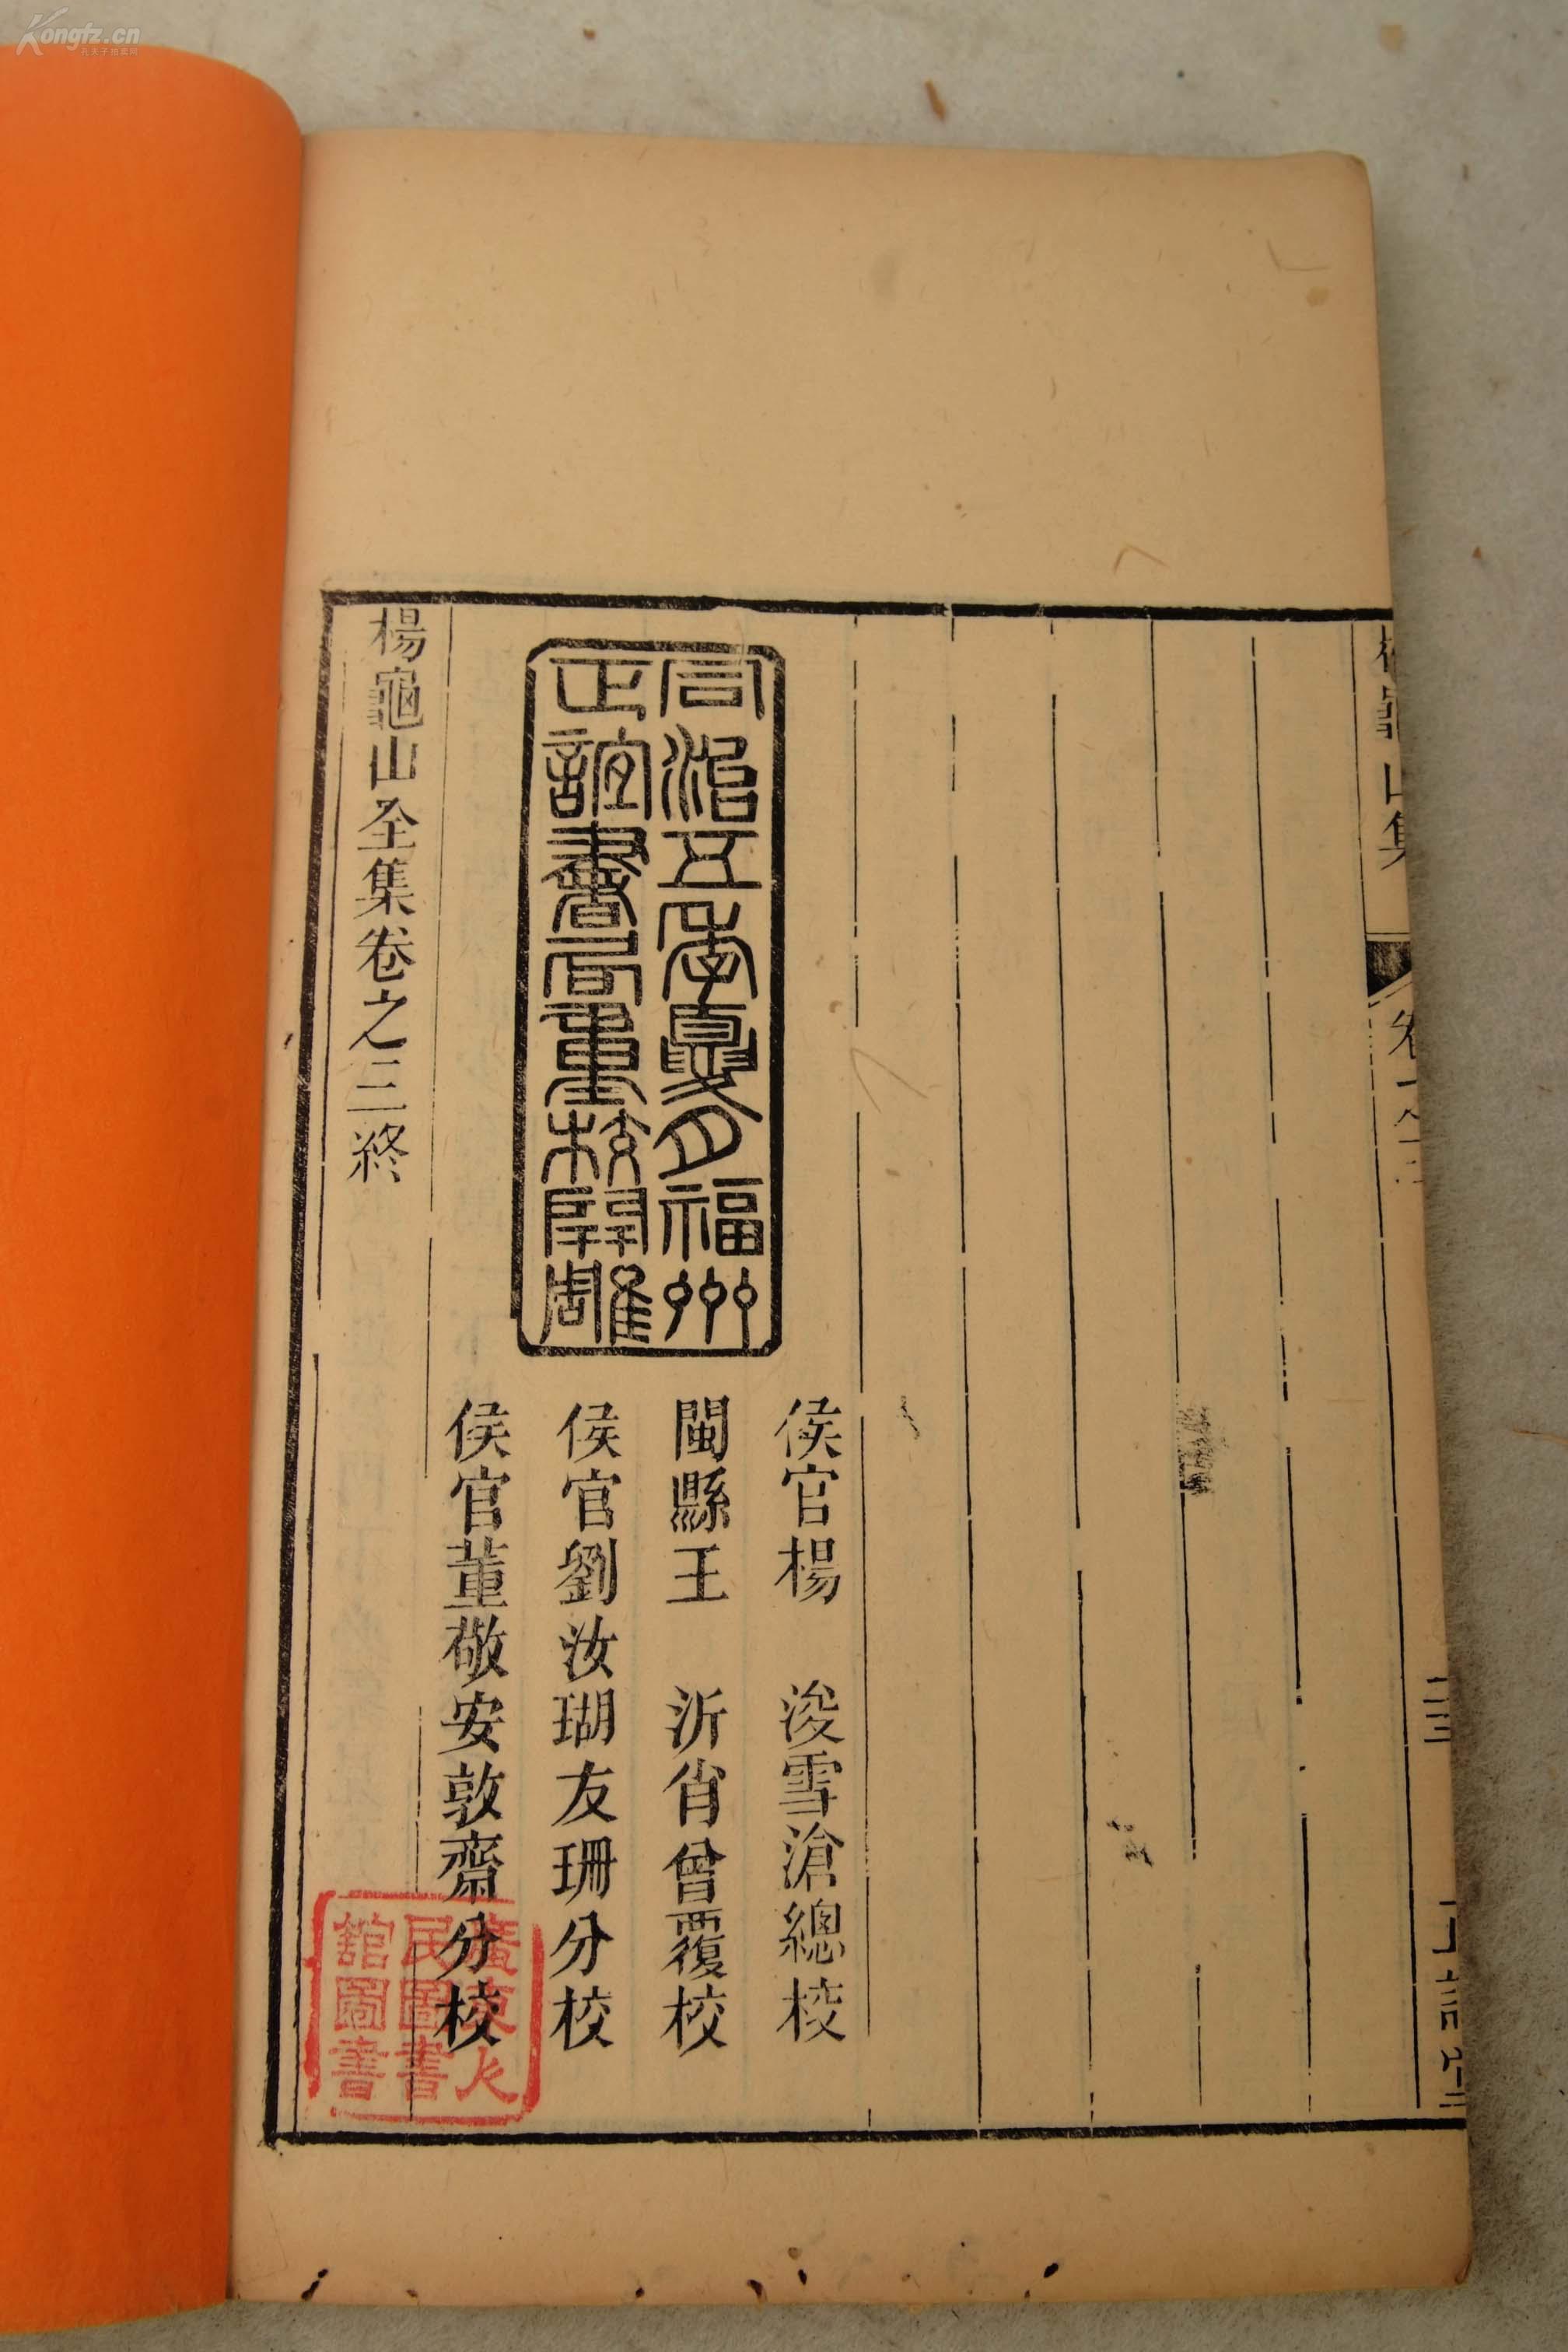 同治五年夏月福州
正誼書局重校開雕
侯官楊　浚雪滄總校
閩縣王　沂肖曾覆校
侯官劉汝瑚友珊分校
侯官董敬安敦齋分校
楊龜山全集卷之三終
廣東人
民圖書
館圖書
Kongfz.cn